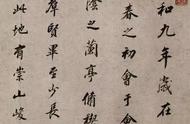 和九年歲在
春之初會于會
陰之蘭亭脩禊
羣賢畢至少長
此地有崇山峻